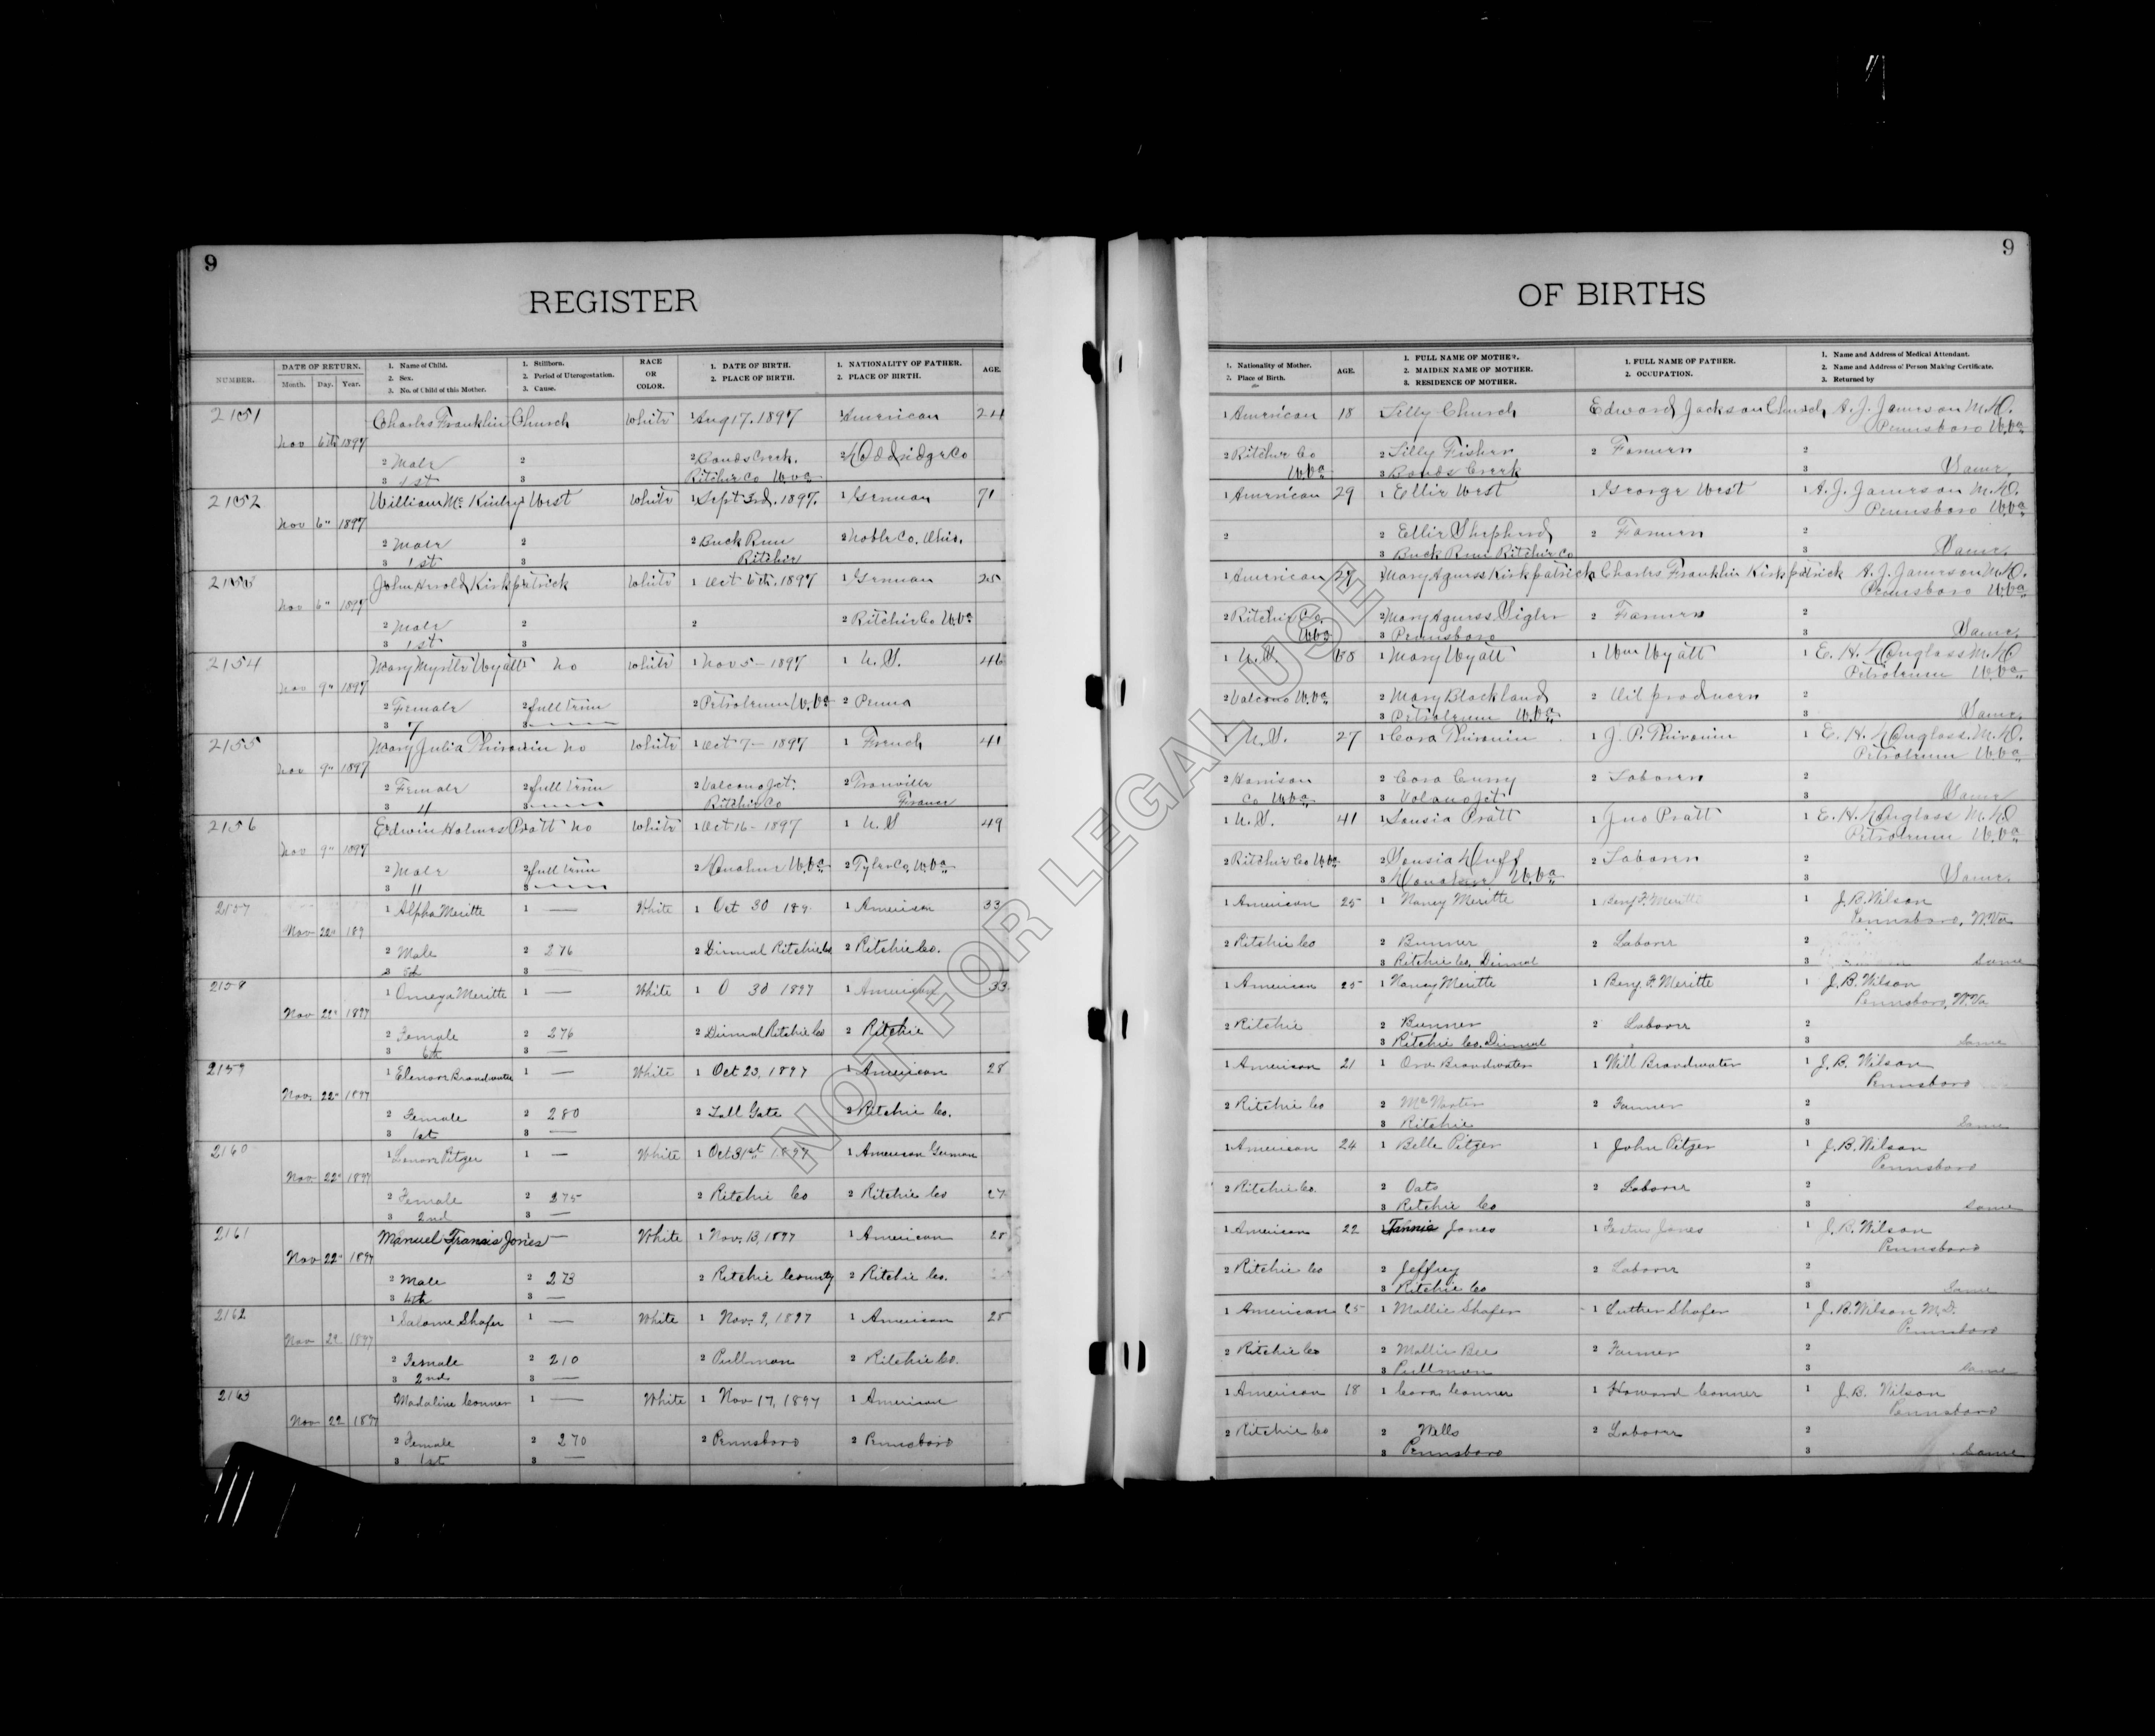 9
9
REGISTER
OF BIRTHS
NUMBER.
DATE OF RETURN.
Month. Day. Year.
1. Name of Child.
2. Sex.
3. No. of Child of this Mother.
1. Stillborn.
2. Period of Uterogestation.
3. Cause.
RACE
OR
COLOR.
1. DATE OF BIRTH.
2. PLACE OF BIRTH.
1. NATIONALITY OF FATHER.
2. PLACE OF BIRTH.
AGE.
1. Nationality of Mother.
2. Place of Birth.
AGE.
1. FULL NAME OF MOTHER.
2. MAIDEN NAME OF MOTHER.
3. RESIDENCE OF MOTHER.
1. FULL NAME OF FATHER.
2. OCCUPATION.
1. Name and Address of Medical Attendant.
2. Name and Address of Person Making Certificate.
3. Returned by
2151 Charles Franklin Church White 1 Aug 17. 1897 1 American 24 1 American 18 Lilly Church Edward Jackson Church A. J. Jamerson M.D.
Pennsboro W.Va
Nov 6th 1897
2 Male 2 2 Bonds Creek. 2 Doddridge Co 2 Ritchie Co 2 Lilly Fisher 2 Farmer 2
3 1st 3 Ritchie Co W.Va W.Va 3 Bonds Creek 3 Same.
2152 William McKinley West White 1 Sept 3rd. 1897. 1 German 71 1 American 29 1 Ellie West 1 George West 1 A. J. Jamerson M.D.
Pennsboro W.Va
Nov 6" 1897
2 Male 2 2 Buck Run 2 Noble Co. Ohio. 2 2 Ellie Shepherd 2 Farmer 2
3 1st 3 Ritchie 3 Buck Run Ritchie Co 3 Same.
2153 John Arnold Kirkpatrick White 1 Oct 6th. 1897 1 German 25 1 American 27 Mary Agness Kirkpatrick Charles Franklin Kirkpatrick A. J. Jamerson M.D.
Pennsboro W.Va
Nov 6" 1897
2 Male 2 2 2 Ritchie Co W.Va 2 Ritchie Co. 2 Mary Agness Sigler 2 Farmer 2
3 1st 3 W.Va 3 Pennsboro 3 Same.
2154 Mary Myrtle Wyatt No White 1 Nov 5 - 1897 1 U.S. 46 1 U.S. 38 1 Mary Wyatt 1 Wm Wyatt 1 E. H. Douglass M.D
Petroleum W.Va
Nov 9" 1897
2 Female 2 full time 2 Petroleum W.Va 2 Penna 2 Volcano W.Va 2 Mary Blackland 2 Oil producer 2
3 7 3 3 Petroleum W.Va 3 Same.
2155 Mary Julia Thirouin No White 1 Oct 7 - 1897 1 French 41 1 U.S. 27 1 Cora Thirouin 1 J. P. Thirouin 1 E. H. Douglass. M.D.
Petroleum W.Va
Nov 9" 1897
2 Female 2 full time 2 Volcano Jct. 2 2 Harrison 2 Cora Curry 2 Laborer 2
3 4 3 Ritchie Co France Co W.Va 3 Volcano Jct 3 Same
2156 Edwin Holmes Pratt No White 1 Oct 16 - 1897 1 U.S 49 1 U.S. 41 1 Lousia Pratt 1 Jno Pratt 1 E. H. Douglass M.D
Petroleum W.Va
Nov 9" 1897
2 Male 2 full time 2 Donahue W.Va 2 Tyler Co, W.Va 2 Ritchie Co W.Va 2 Lousia Duff 2 Laborer 2
3 11 3 3 Donahue W.Va 3 Same.
2157 1 Alpha Meritte 1 — White 1 Oct 30 189 1 American 33 1 American 25 1 Nancy Meritte 1 Benj F. Meritte 1 J. B. Wilson
Pennsboro, W.Va
Nov 22" 189
2 Male 2 276 2 Dismal Ritchie Co 2 Ritchie Co. 2 Ritchie Co 2 Bunner 2 Laborer 2
3 5th 3 — 3 Ritchie Co, Dismal 3 Same
2158 1 Omega Meritte 1 — White 1 O 30 1897 1 American 33 1 American 25 1 Nancy Meritte 1 Benj. F. Meritte 1 J. B. Wilson
Pennsboro, W.Va
Nov 22" 1897
2 Female 2 276 2 Dismal Ritchie Co 2 Ritchie 2 Ritchie 2 Bunner 2 Laborer 2
3 6th 3 — 3 Ritchie Co. Dismal 3 Same
2159 1 Elenore Broadwater 1 — White 1 Oct 23, 1897 1 American 28 1 American 21 1 Ora Broadwater 1 Will Broadwater 1 J. B. Wilson
Pennsboro
Nov. 22" 1897
2 Female 2 280 2 Toll Gate 2 Ritchie Co. 2 Ritchie Co 2 2 Farmer 2
3 1st 3 — 3 Ritchie 3 Same
2160 1 Lenore Pitzer 1 — White 1 Oct 31st 1897 1 American German 1 American 24 1 Belle Pitzer 1 John Pitzer 1 J. B. Wilson
Pennsboro
Nov 22" 1897
2 Female 2 275 2 Ritchie Co 2 Ritchie Co 27 2 Ritchie Co. 2 Oats 2 Laborer 2
3 2nd 3 — 3 Ritchie Co 3 Same
2161 Manuel Francis Jones — White 1 Nov, 13, 1897 1 American 28 1 American 22 1 Fannie Jones 1 Festus Jones 1 J. B. Wilson
Pennsboro
Nov 22" 1897
2 Male 2 273 2 Ritchie County 2 Ritchie Co. 2 Ritchie Co 2 Jeffrey 2 Laborer 2
3 4th 3 — 3 Ritchie Co 3 Same
2162 1 Salome Shafer 1 — White 1 Nov. 9, 1897 1 American 28 1 American 25 1 Mollie Shafer 1 Luther Shafer 1 J. B. Wilson M.D.
Pennsboro
Nov 22 1897
2 Female 2 210 2 Pullman 2 Ritchie Co. 2 Ritchie Co 2 Mollie Bee 2 Farmer 2
3 2nd 3 — 3 Pullman 3 Same
2163 Madaline Conner 1 — White 1 Nov 17, 1897 1 American 1 American 18 1 Cora Conner 1 Howard Conner 1 J. B. Wilson
Pennsboro
Nov 22 1897
2 Female 2 270 2 Pennsboro 2 Pennsboro 2 Ritchie Co 2 Wells 2 Laborer 2
3 1st 3 — 3 Pennsboro 3 Same
NOT FOR LEGAL USE